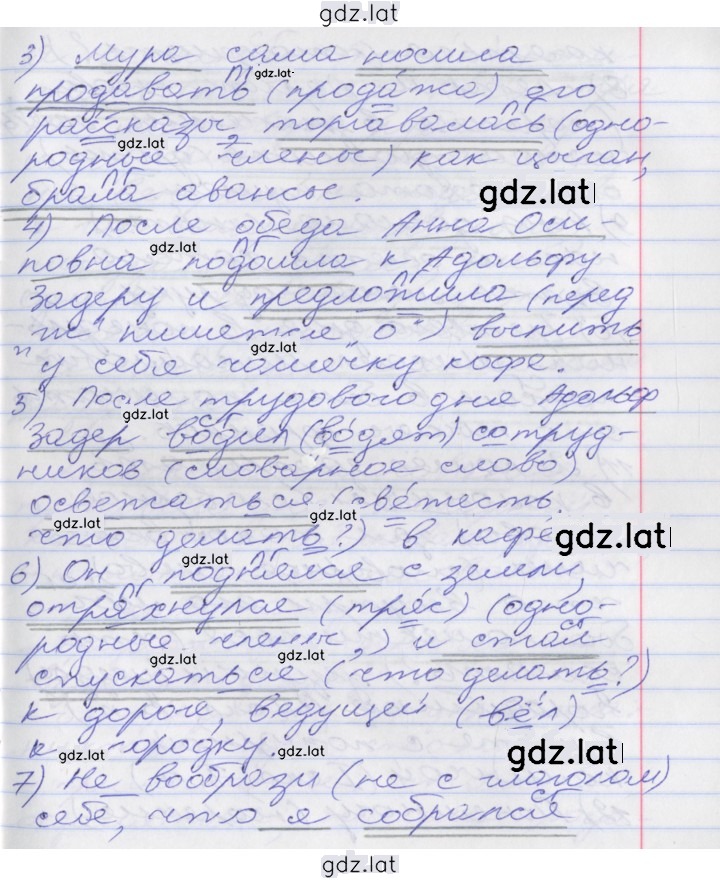 gdz.lat
3) Мура сама носила
продавать (продажа) его
gdz.lat
рассказы, торговалась (одно-
gdz.lat
родные члены) как цыган,
брала авансы.
gdz.lat
4) После обеда Анна Оси-
gdz.lat
повна подошла к Адольфу
Задеру и предложила (перед
"ж" пишется "о") выпить
gdz.lat
у себя чашечку кофе.
5) После трудового дня Адольф
gdz.lat
Задер водил (водят) сотруд-
ников (словарное слово)
освежаться (свежесть.
gdz.lat gdz.lat
что делать?) в кафе
gdz.lat
6) Он поднялся с земли,
отряхнулся (тряс) (одно-
родные члены,) и стал
gdz.lat gdz.lat
спускаться (что делать?)
к дороге, ведущей (вёл)
к городку.
gdz.lat gdz.lat gdz.lat
7) Не вообрази (не с глаголом)
себе, что я собрался
gdz.lat